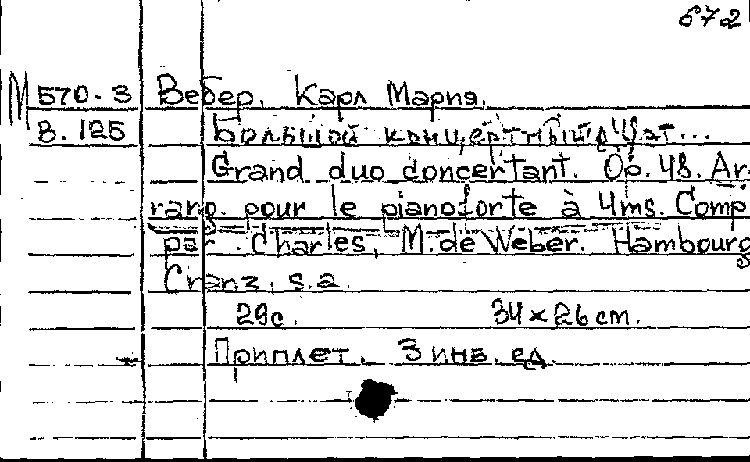 672
М 570-3 Вебер, Карл Мария.
В. 125 Большой концертный дуэт...
Grand duo concertant. Op. 48. Ar-
rang. pour le pianoforte à 4ms. Comp.
par Charles, M. de Weber. Hambourg
Cranz, s.a.
29с. 34 x 26 cm.
Приплет. 3 инв. ед.